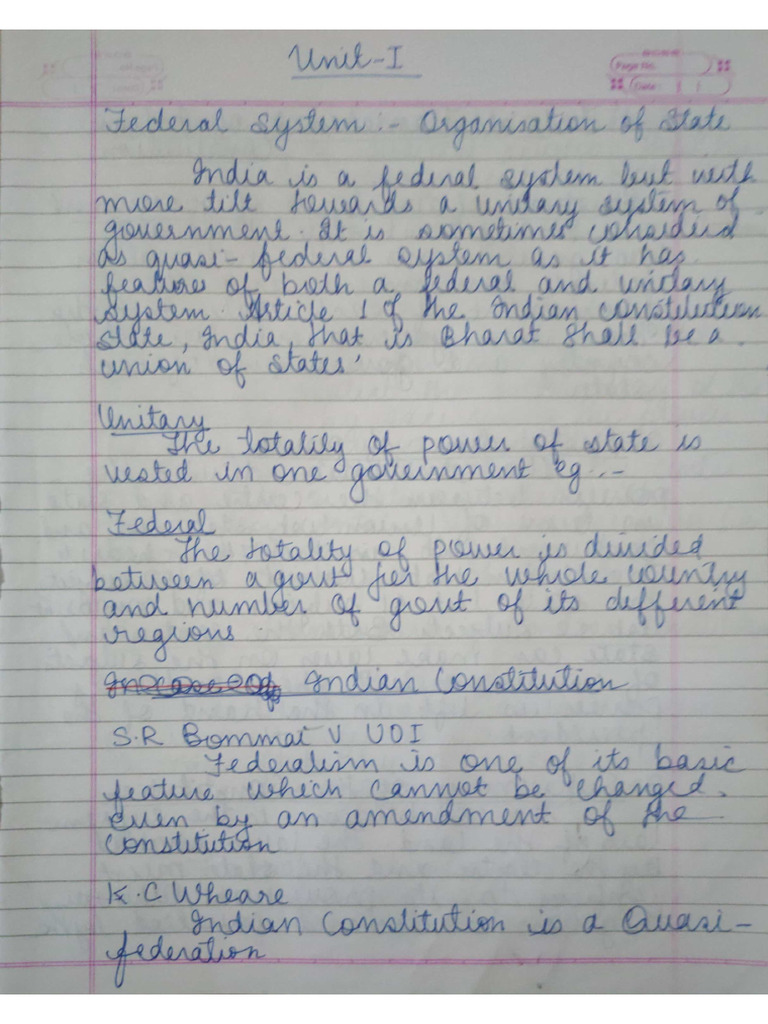 Unit-I
Page No.
Date
Federal System :- Organisation of State
India is a federal system but with
more tilt towards a unitary system of
government. It is sometimes considerd
as quasi-federal system as it has
feature of both a federal and unitary
system. Article 1 of the Indian constitution
state, India, that is Bharat shall be a
union of states'
Unitary
The totality of power of state is
vested in one government eg :-
Federal
The totality of power is divided
between a govt for the whole country
and number of govt of its different
regions.
Indian Constitution
S.R Bommai V UOI
Federalism is one of its basic
feature which cannot be changed.
even by an amendment of the
constitution
K.C Wheare
Indian Constitution is a Quasi-
federation